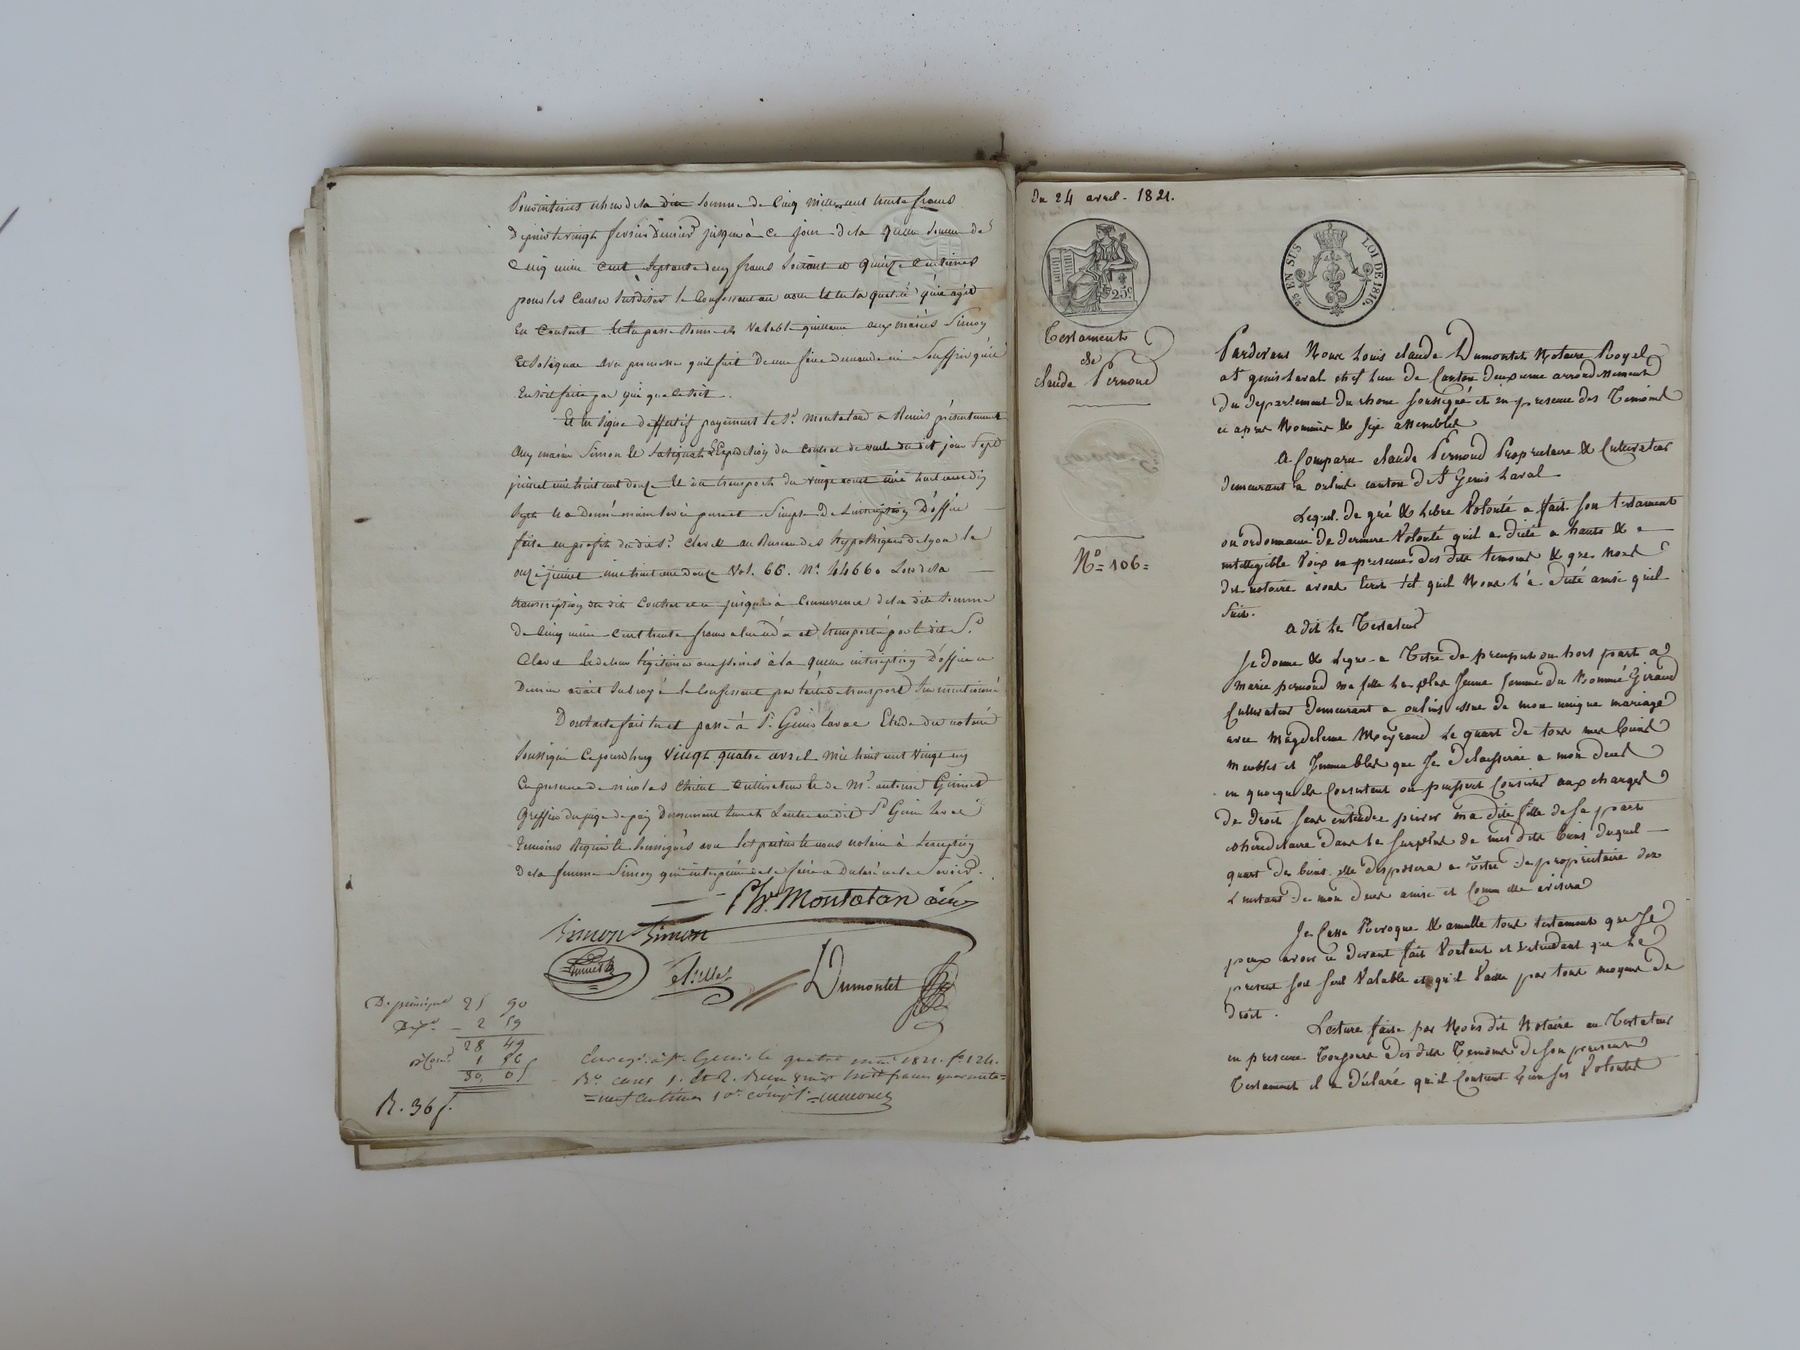 somme de Cinq mille cent trente francs
depuis le vingt fevrier dernier jusqu'à ce jour de la quelle somme de
Cinq mille cent septante deux francs soixante et quinze centimes
pour les causes susdites le Confessant au nom et en la qualité qu'il agit
Est Content et en passe bonne et valable quittance aux mariés Simon
et Satignat avec promesse qu'il fait de ne faire demande ni souffrir qu'il
En soit faite par qui que ce soit.
Et en signe d'effectif payement le Sr. Montatand a Remis présentement
aux mariés Simon et Satignat l'Expedition du contrat de vente du dit jour Sept
juillet mil huit cent douze et du transport du vingt août mil huit cent dix
sept et a donné main levée pure et simple de L'inscription D'office
faite au profit du dit Sr. Clavel au Bureau des hypothèques de Lyon le
onze juillet mil huit cent douze Vol. 66. No. 4466. Lors de la
transcription du dit Contrat et ce jusqu'à Concurrence de la dite somme
de Cinq mille cent trente francs et transporté par le dit Sr.
Clavel
dernier avait subrogé le Confessant par l'acte de transport sus mentionné
Dont acte fait lu et passé à St. Genis laval Etude du notaire
soussigné Ce jourd'huy vingt quatre avril mil huit cent vingt un
En presence de nicolas Chillet cultivateur et de Mr. antoine Guinet
Greffier du juge de paix Demeurant tous deux au dit St. Genis Laval
témoins Requis et soussignés avec les parties et nous notaire à L'exception
de la femme Simon qui interpellée de le faire a Declaré ne le savoir.
Montatan ainé
Simon Simon
Guinet
Chillet
Dumontet
Dt. principal 25 90
Dixe. 2 59
28 49
1 56
30, 05
R. 36 f.
Enregé. à St. Genis le quatre mai 1821. fo. 124.
Ro. cases 1. et 2. Reçu vingt huit francs quarante=
=neuf centimes 10e. compt.
Du 24 avril - 1821.
25c.
25 EN SUS
LOI DE 1816.
Testament
de
Claude Pernoud
No = 106 =
Pardevant Nous Louis claude Dumontet Notaire Royal
a St genis Laval chef Lieu de Canton deuxieme arrondissement
du departement du rhone soussigné et en presence des Temoins
ci apres Nommés & sixe assemblés
A Comparu claude Pernoud Proprietaire & Cultivateur
demeurant a oulins canton de St Genis Laval
Lequel. de gré & Libre Volonté a fait son testament
ou ordonnance de derniere Volonté qu'il a dicté a haute & -
intelligible Voix en presence des dits temoins & que Nous
dit notaire avons Ecrit tel quil Nous l'a dicté ainsi quil
suit.
A dit Le Testateur
Je donne & Legue a Titre de preciput ou hors part a
marie pernoud ma fille La plus Jeune femme du Nommé Giraud
Cultivateur demeurant a oulins issue de mon unique mariage
avec Magdeleine Meyraud Le quart de tous mes biens
meubles et Immeubles que Je delaisserai a mon deces
en quoi qu'ils Consistent ou puissent Consister aux charges
de droit sans entendre priver ma dite fille de sa part
cohereditaire dans Le surplus de mes dits biens duquel -
quart des biens elle disposera a titre de proprietaire des
L'instant de mon deces ainsi et Comme elle avisera
Je Casse Revoque & annulle tous testaments que Je
peux avoir ci devant fait Voulant et entendant que Le
present soit seul Valable et qu'il Vaille par tous moyens de
droit.
Lecture faite par Nous dit Notaire au Testateur
en presence toujours des dits temoins de son present
Testament il a déclaré qu'il Contient bien ses Volontés